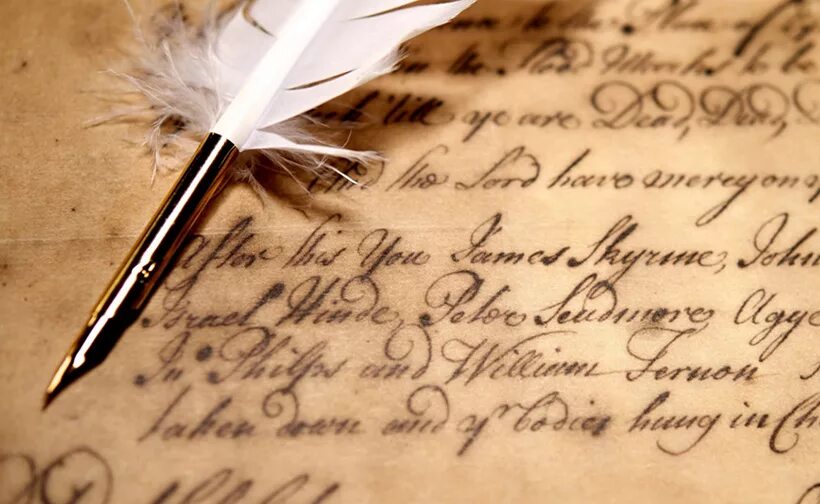 the Place of
the Flod Marks to be
till ye are Dead, Dead,
And the Lord have mercy on
After this You James Skyrme, John
Israel Hinde, Peter Scudmore Agge
Jnº Philps and William Fernon
taken down and yr bodies hung in Ch